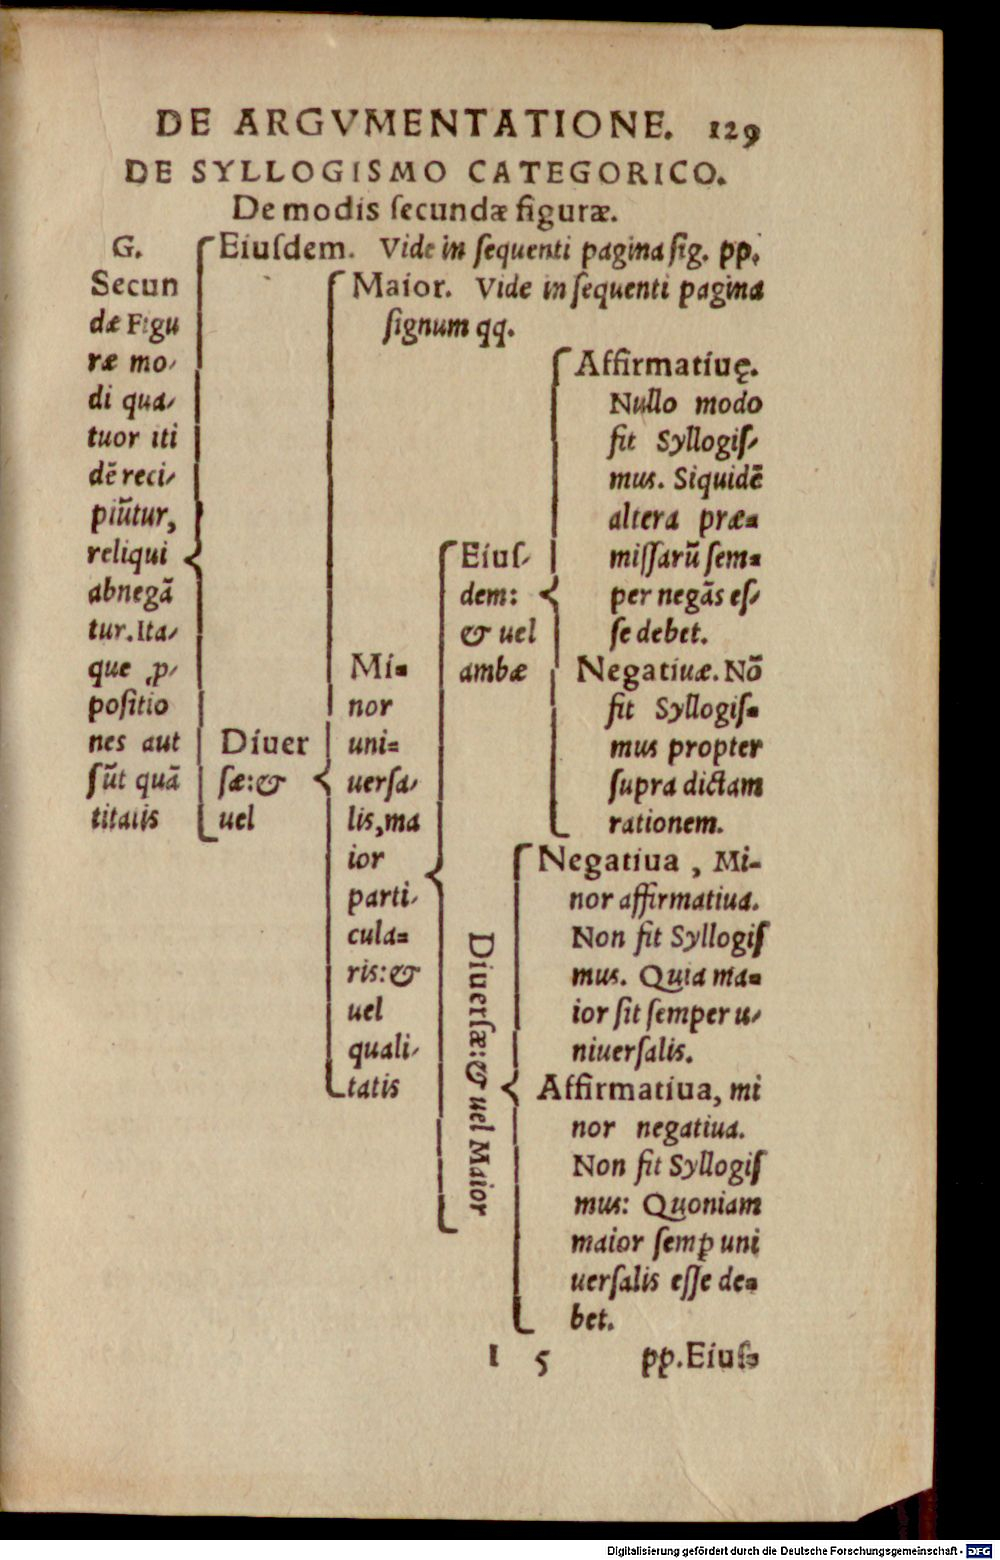 DE ARGVMENTATIONE. 129
DE SYLLOGISMO CATEGORICO.
De modis ſecundæ figuræ.
G.
Secun
dæ Figu
ræ mo⸗
di qua⸗
tuor iti
dē reci⸗
piūtur,
reliqui
abnegā
tur. Ita⸗
que ꝓ⸗
poſitio
nes aut
ſūt quā
titatis
Eiuſdem. Vide in ſequenti pagina ſig. pp.
Diuer
ſæ: &
uel
Maior. Vide in ſequenti pagina
ſignum qq.
Mi⸗
nor
uni⸗
uerſa⸗
lis, ma
ior
parti⸗
cula⸗
ris: &
uel
quali⸗
tatis
Eiuſ⸗
dem:
& uel
ambæ
Affirmatiuę.
Nullo modo
fit Syllogiſ⸗
mus. Siquidē
altera præ⸗
miſſarū ſem⸗
per negās eſ⸗
ſe debet.
Negatiuæ. Nō
fit Syllogiſ⸗
mus propter
ſupra dictam
rationem.
Diuerſæ: & uel Maior
Negatiua, Mi⸗
nor affirmatiua.
Non fit Syllogiſ
mus. Quia ma⸗
ior ſit ſemper u⸗
niuerſalis.
Affirmatiua, mi
nor negatiua.
Non fit Syllogiſ
mus: Quoniam
maior ſemꝑ uni
uerſalis eſſe de⸗
bet.
I 5 pp. Eiuſ⸗
Digitalisierung gefördert durch die Deutsche Forschungsgemeinschaft - DFG